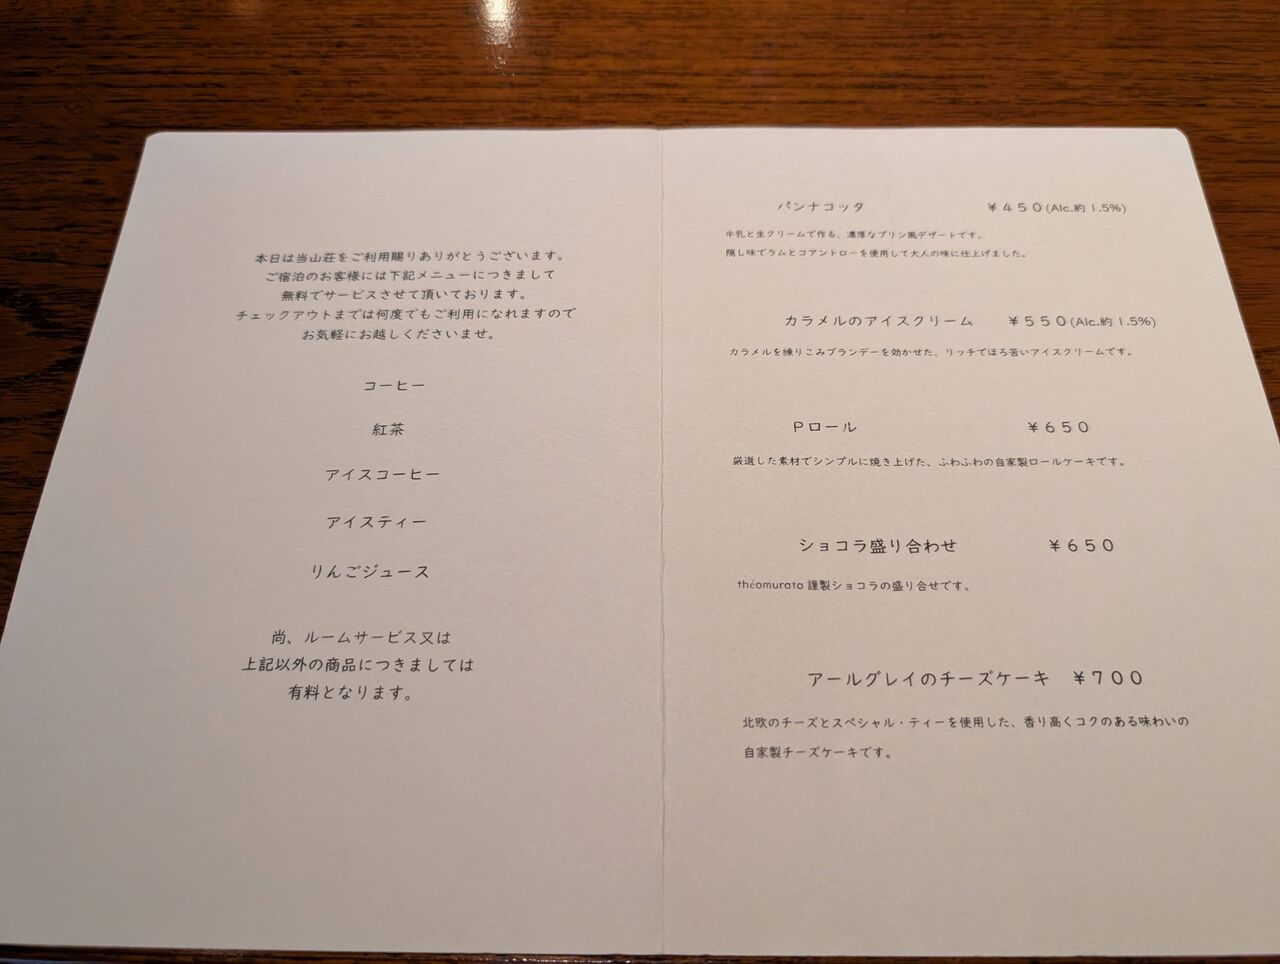 本日は当山荘をご利用賜りありがとうございます。
ご宿泊のお客様には下記メニューにつきまして
無料でサービスさせて頂いております。
チェックアウトまでは何度でもご利用になれますので
お気軽にお越しくださいませ。
コーヒー
紅茶
アイスコーヒー
アイスティー
りんごジュース
尚、ルームサービス又は
上記以外の商品につきましては
有料となります。
パンナコッタ ￥４５０(Alc.約 1.5%)
牛乳と生クリームで作る、濃厚なプリン風デザートです。
隠し味でラムとコアントローを使用して大人の味に仕上げました。
カラメルのアイスクリーム ￥５５０(Alc.約 1.5%)
カラメルを練りこみブランデーを効かせた、リッチでほろ苦いアイスクリームです。
Ｐロール ￥６５０
厳選した素材でシンプルに焼き上げた、ふわふわの自家製ロールケーキです。
ショコラ盛り合わせ ￥６５０
théomurata 謹製ショコラの盛り合せです。
アールグレイのチーズケーキ ￥７００
北欧のチーズとスペシャル・ティーを使用した、香り高くコクのある味わいの
自家製チーズケーキです。